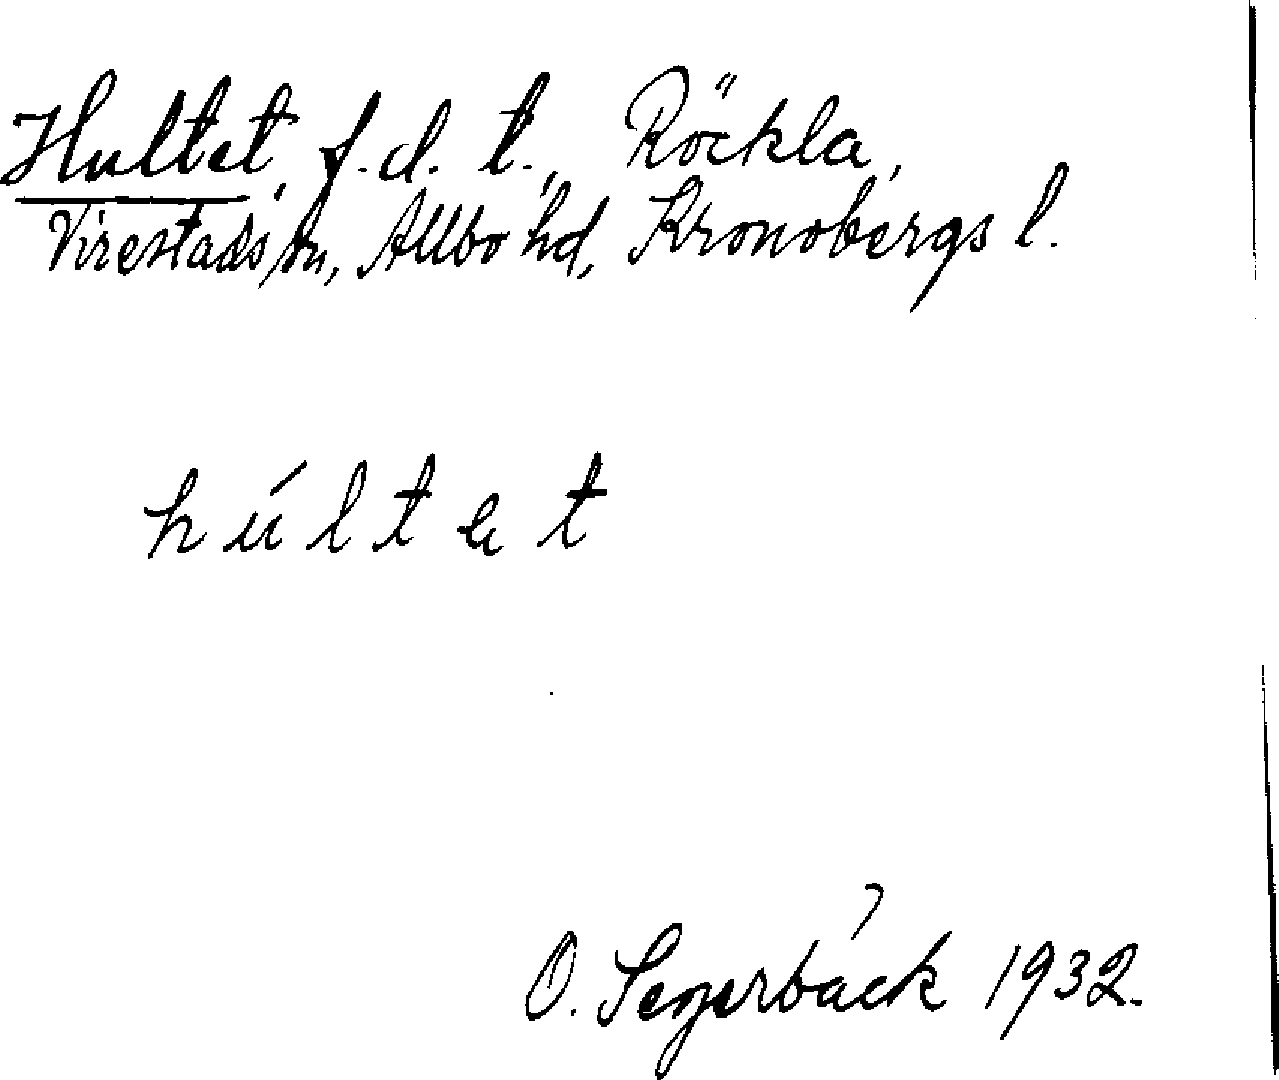 Hultet, f.d. t., Röckla,
Virestads sn, Allbo hd, Kronobergs l.
húltət
O. Segerbäck 1932.